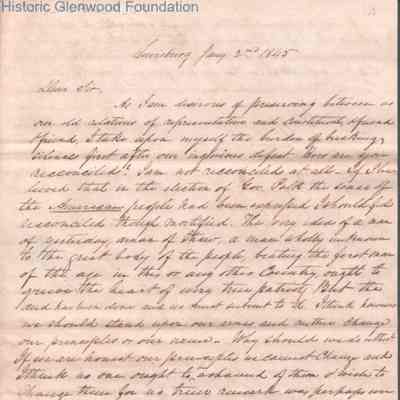 Historic Glenwood Foundation
Jany 2nd 1845
Dear Sir,
As I am desirous of preserving between us
our old relations of representative and constituent, friend
friend, I take upon myself the burden of breaking
silence first after our inglorious defeat. How are you
reconciled? I am not reconciled at all. If I be-
lieved that in the election of Gov. Polk the sense of
the American people had been expressed I should feel
reconciled though mortified. The very idea of a man
of yesterday, a man of straw, a man wholly unknown
to the great body of the people, beating the first man
of the age in this or any other Country, ought to
the heart of every true patriot. But the
deed has been done and we must submit to it. I think however
we should stand upon our arms and neither change
our principles or our name. Why should we do either?
If we are honest our principles we cannot change and
I think no one ought to be ashamed of them or wish to
change them for no truer remark was perhaps ever